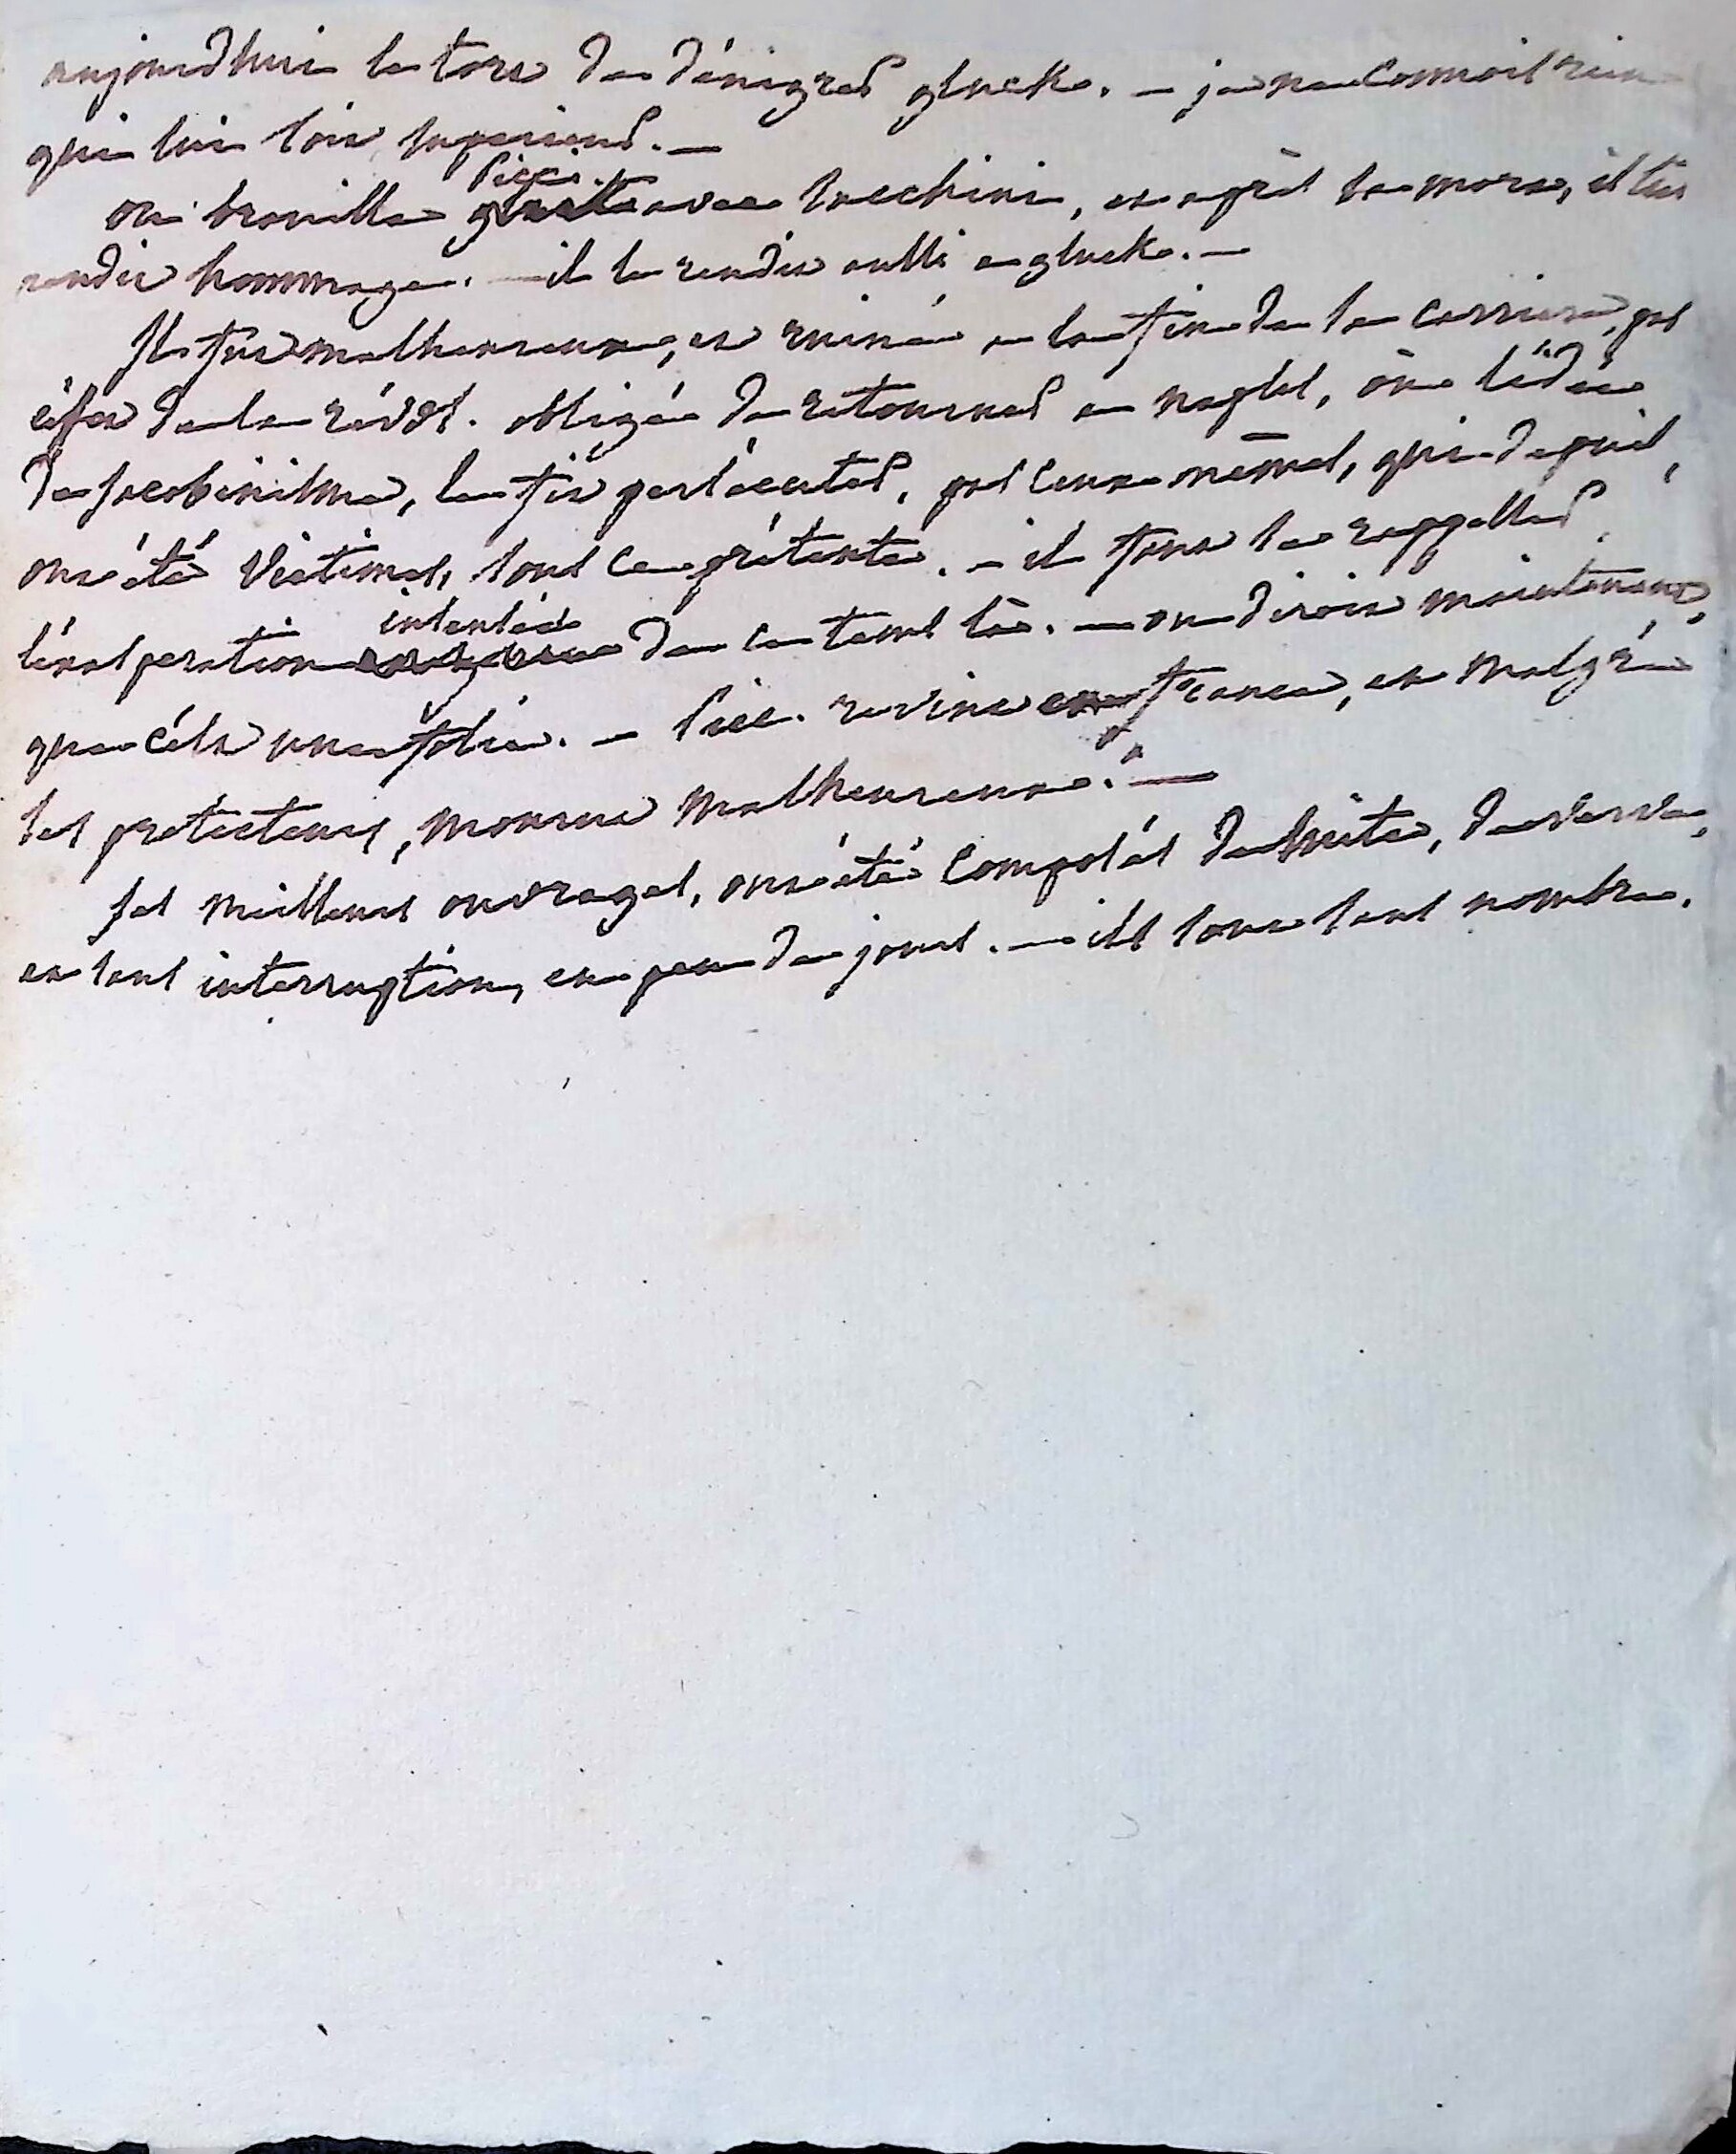 aujourdhui le tort de dénigrer glucke. — je ne connois rien
qui lui soit superieur. —
Picci.
on brouilla avec sacchini, et après sa mort, il lui
rendit hommage. — il le rendit aussi a glucke. —
Il fut malheureux, et ruiné a la fin de sa carriere, par
éffet de la révol. obligé de retourner a naples, où l'idée
de jacobinisme, le fit persécuter, par ceux mêmes, qui depuis,
ont été victimes, sous ce prétexte. — il faut se rappeller
intentée
l'exasperation de ce tems là. — on diroit maintenant,
que c'éta une folie. — Picc. revint en france, et malgré
ses protecteurs, mourut malheureux. —
ses meilleurs ouvrages, ont été composés de suite, de verve,
et sans interruption, en peu de jours. — ils sont sans nombre.